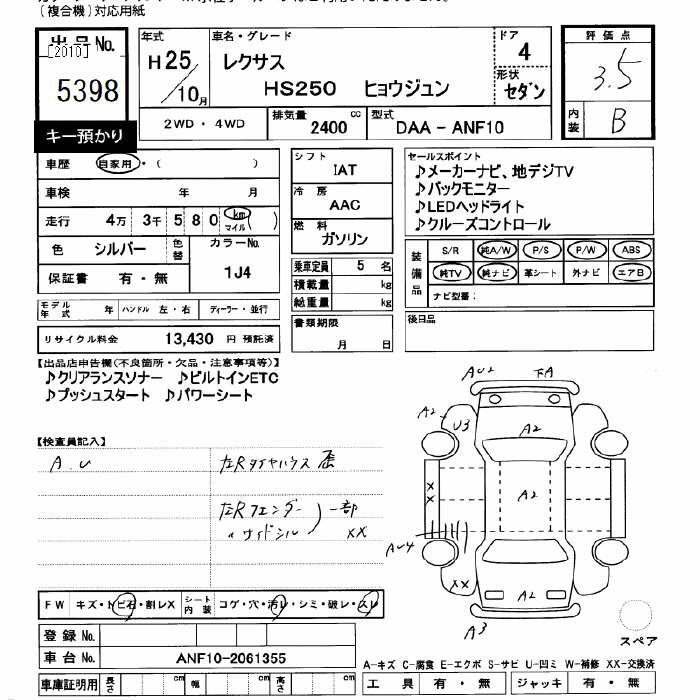 (複合機)対応用紙
出品No.
[2010]
5398
キー預かり
年式
H25/10月
車名・グレード
レクサス
HS250 ヒョウジュン
ドア
4
形状
セダン
2WD・4WD
排気量
2400 cc
型式
DAA-ANF10
評価点
3.5
内装
B
車歴 自家用・( )
車検 年 月
走行 4万 3千 5 8 0 km マイル( )
色 シルバー 色替
カラーNo.
1J4
保証書 有・無
モデル年式 年 ハンドル 左・右 ディーラー・並行
リサイクル料金 13,430 円 預託済
シフト
IAT
冷房
AAC
燃料
ガソリン
乗車定員 5 名
積載量 kg
総重量 kg
書類期限
月 日
セールスポイント
♪メーカーナビ、地デジTV
♪バックモニター
♪LEDヘッドライト
♪クルーズコントロール
装備品
S/R 純A/W P/S P/W ABS
純TV 純ナビ 革シート 外ナビ エアB
ナビ型番:
後日品
【出品店申告欄(不良箇所・欠品・注意事項等)】
♪クリアランスソナー ♪ビルトインETC
♪プッシュスタート ♪パワーシート
【検査員記入】
A.U
左Rタイヤハウス 歪
左Rフェンダー
〃サイドシル
一部
XX
AU2
FA
A2
U3
A2
A2
X
X
AU4
XX
A2
A3
スペア
FW キズ・トビ石・割レX シート内装 コゲ・穴・汚レ・シミ・破レ・スレ
登録No.
車台No. ANF10-2061355
車庫証明用 長さ cm 幅 cm 高さ cm
A-キズ C-腐食 E-エクボ S-サビ U-凹ミ W-補修 XX-交換済
工具 有・無 ジャッキ 有・無